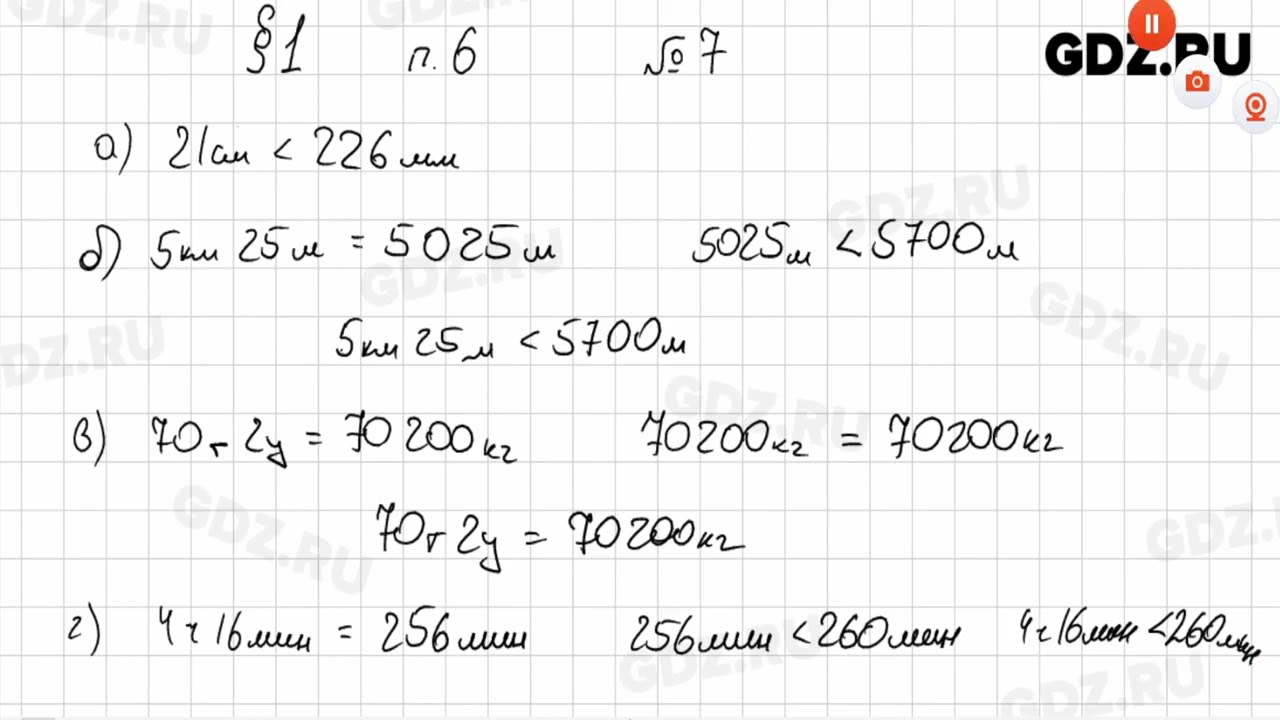 §1 п.6 №7
GDZ.RU
а) 21см < 226мм
б) 5км 25м = 5025м 5025м < 5700м
5км 25м < 5700м
в) 70т 2ц = 70200кг 70200кг = 70200кг
70т 2ц = 70200кг
г) 4ч 16мин = 256мин 256мин < 260мин 4ч 16мин < 260мин